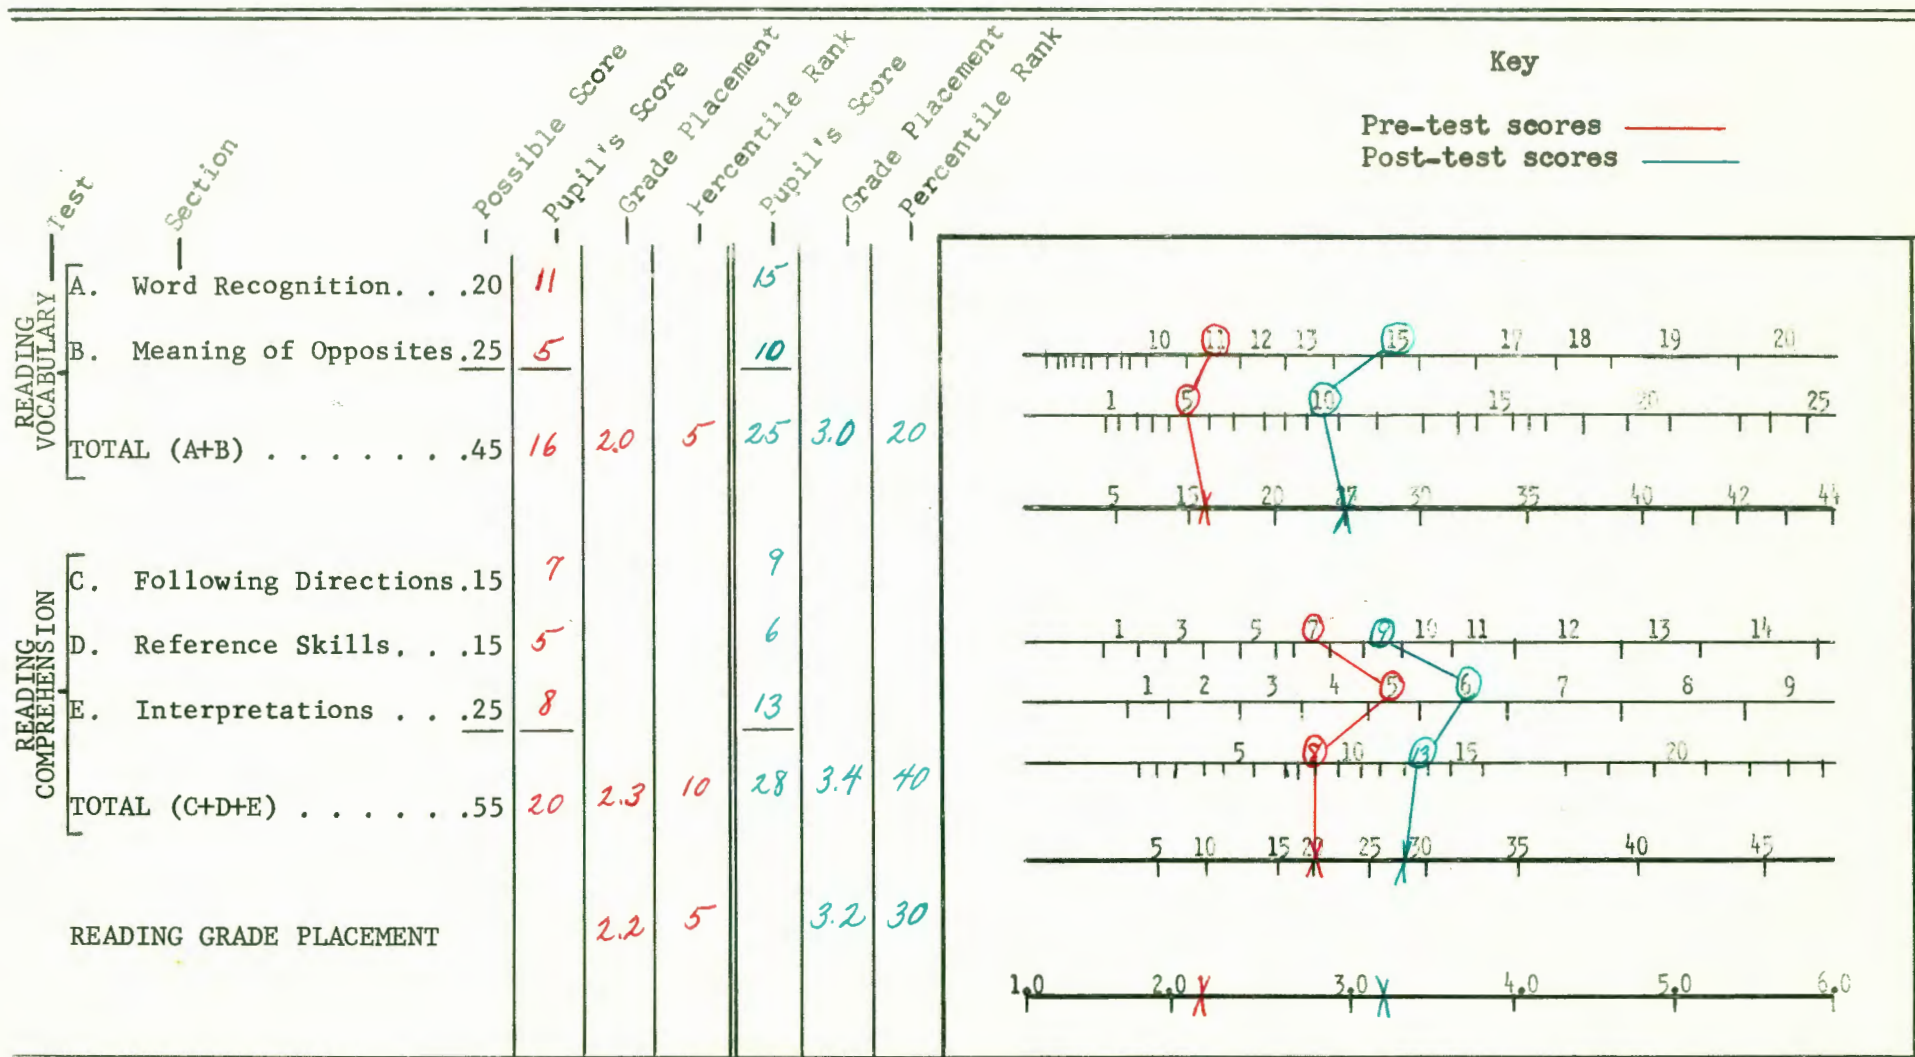 Key
Pre-test scores
Post-test scores
Test Section Possible Score Pupil's Score Grade Placement Percentile Rank Pupil's Score Grade Placement Percentile Rank
READING VOCABULARY
A. Word Recognition. . .20 11 15
B. Meaning of Opposites.25 5 10
TOTAL (A+B) . . . . . . .45 16 2.0 5 25 3.0 20
READING COMPREHENSION
C. Following Directions.15 7 9
D. Reference Skills. . .15 5 6
E. Interpretations . . .25 8 13
TOTAL (C+D+E) . . . . . .55 20 2.3 10 28 3.4 40
READING GRADE PLACEMENT 2.2 5 3.2 30
10 11 12 13 15 17 18 19 20
1 5 10 15 20 25
5 15 20 30 35 40 42 44
1 3 5 7 9 10 11 12 13 14
1 2 3 4 5 6 7 8 9
5 8 10 13 15 20
5 10 15 20 25 30 35 40 45
1.0 2.0 3.0 4.0 5.0 6.0